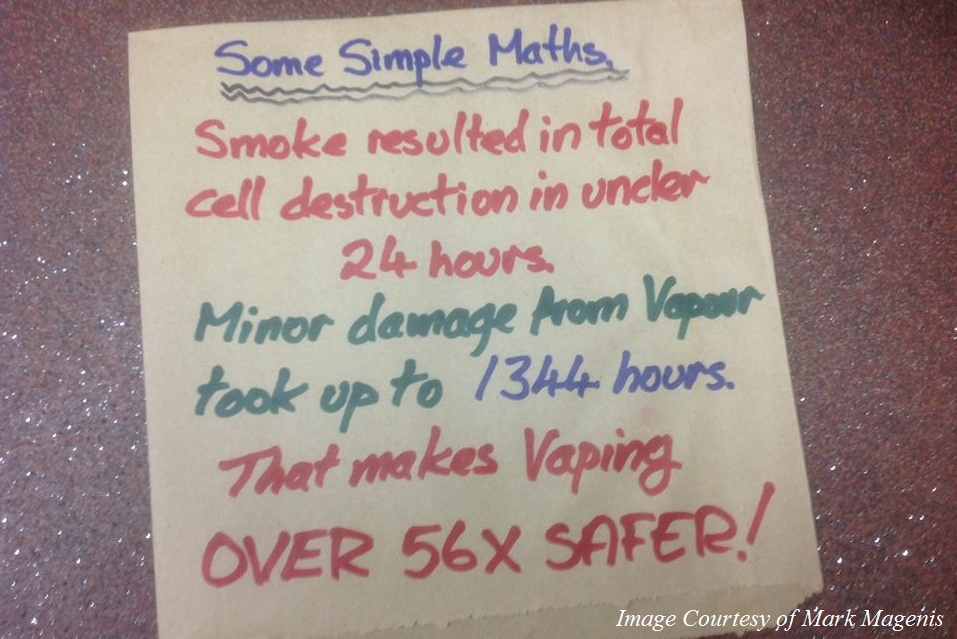 Some Simple Maths.
Smoke resulted in total
cell destruction in under
24 hours.
Minor damage from Vapour
took up to 1344 hours.
That makes Vaping
OVER 56X SAFER!
Image Courtesy of Mark Magenis